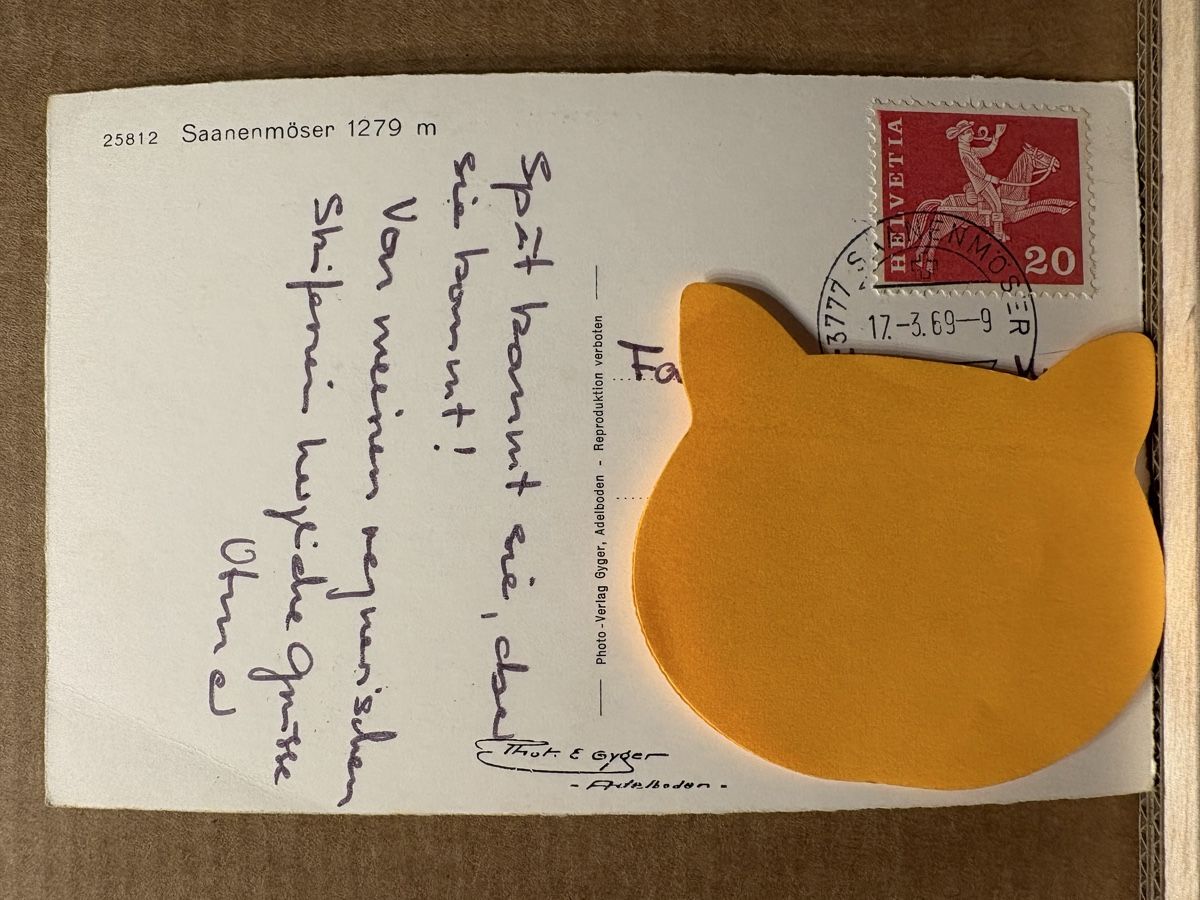 25812 Saanenmöser 1279 m
Spät kommt sie, doch
sie kommt!
Von meinen regnerischen
Skiferien herzliche Grüsse
Photo-Verlag Gyger, Adelboden - Reproduktion verboten
Phot. E Gyger
- Adelboden -
HELVETIA
20
3777 SAANENMÖSER
17.-3.69-9